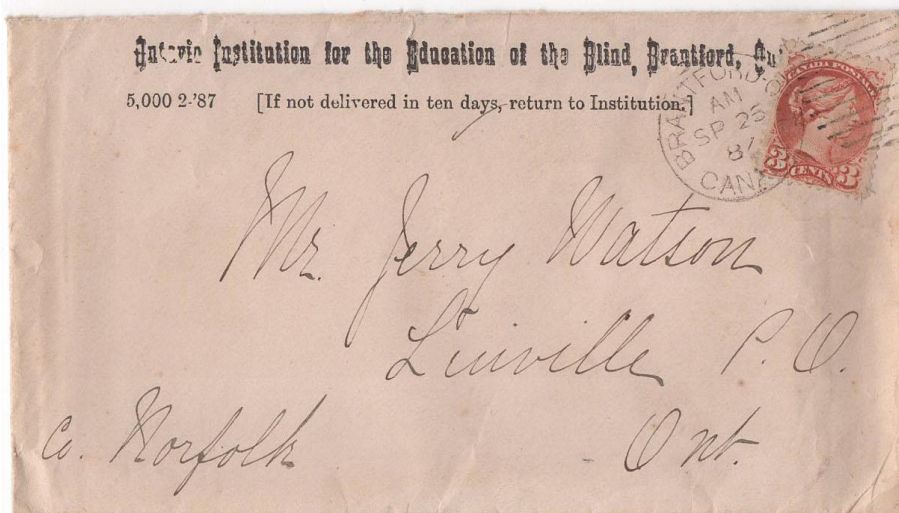 Ontario Institution for the Education of the Blind, Brantford,
5,000 2-'87 [If not delivered in ten days, return to Institution.]
BRANTFORD
AM
SP 25
87
CANADA
CANADA POSTAGE
3 CENTS 3
Mr. Jerry Watson
Linville P. O.
Co. Norfolk Ont.